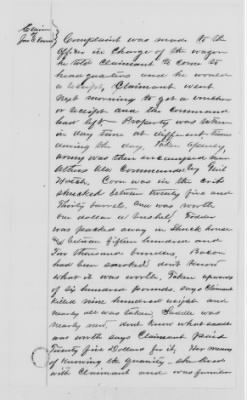 Claim
Complaint was made to the
officer in charge of the wagon
he told Claimant to come to
headquarters and he would
a receipt, Claimant went
next morning to get a voucher
or receipt and the command
had left - Property was taken
in day time at different times
during the day. Taken openly,
army was then encamped near
Corn was in the crib
shucked between twenty five and
Thirty barrels, and was worth
one dollar a bushel, Fodder
was packed away in Shuck house
between fifteen hundred and
Two thousand bundles, Bacon
had been smoked, don't know
what it was worth, Taken upwards
of six hundred pounds, says Claimant
killed nine hundred weight and
nearly all was taken, Saddle was
nearly new, don't know what saddle
was worth says Claimant paid
Twenty five Dollars for it, Her means
of knowing the quantity - she lived
with Claimant and was familiar